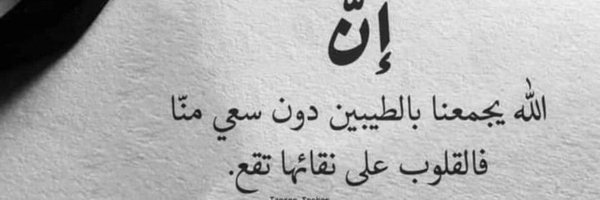 إنّ
الله يجمعنا بالطيبين دون سعي منّا
فالقلوب على نقائها تقع.